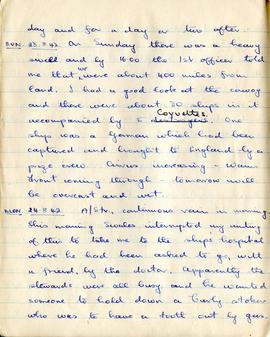 day and for a day or two after.
SUN. 23.8.42. On Sunday there was a heavy
swell and by 1600 the 1st officer told
me that we were about 400 miles from
land. I had a good look at the convoy
and there were about 30 ships in it
Corvettes.
accompanied by 5 destroyers. One
ship was a German which had been
captured and brought to England by a
prize crew. Cirrus increasing - warm
front coming through - tomorrow will
be overcast and wet.
MON. 24.8.42. A/Str, continuous rain in morning
this morning Swales interrupted my writing
of this to take me to the ships hospital
where he had been asked to go, with
a friend, by the doctor. Apparently the
stewards were all busy and he wanted
someone to hold down a burly stoker
who was to have a tooth out by gas.